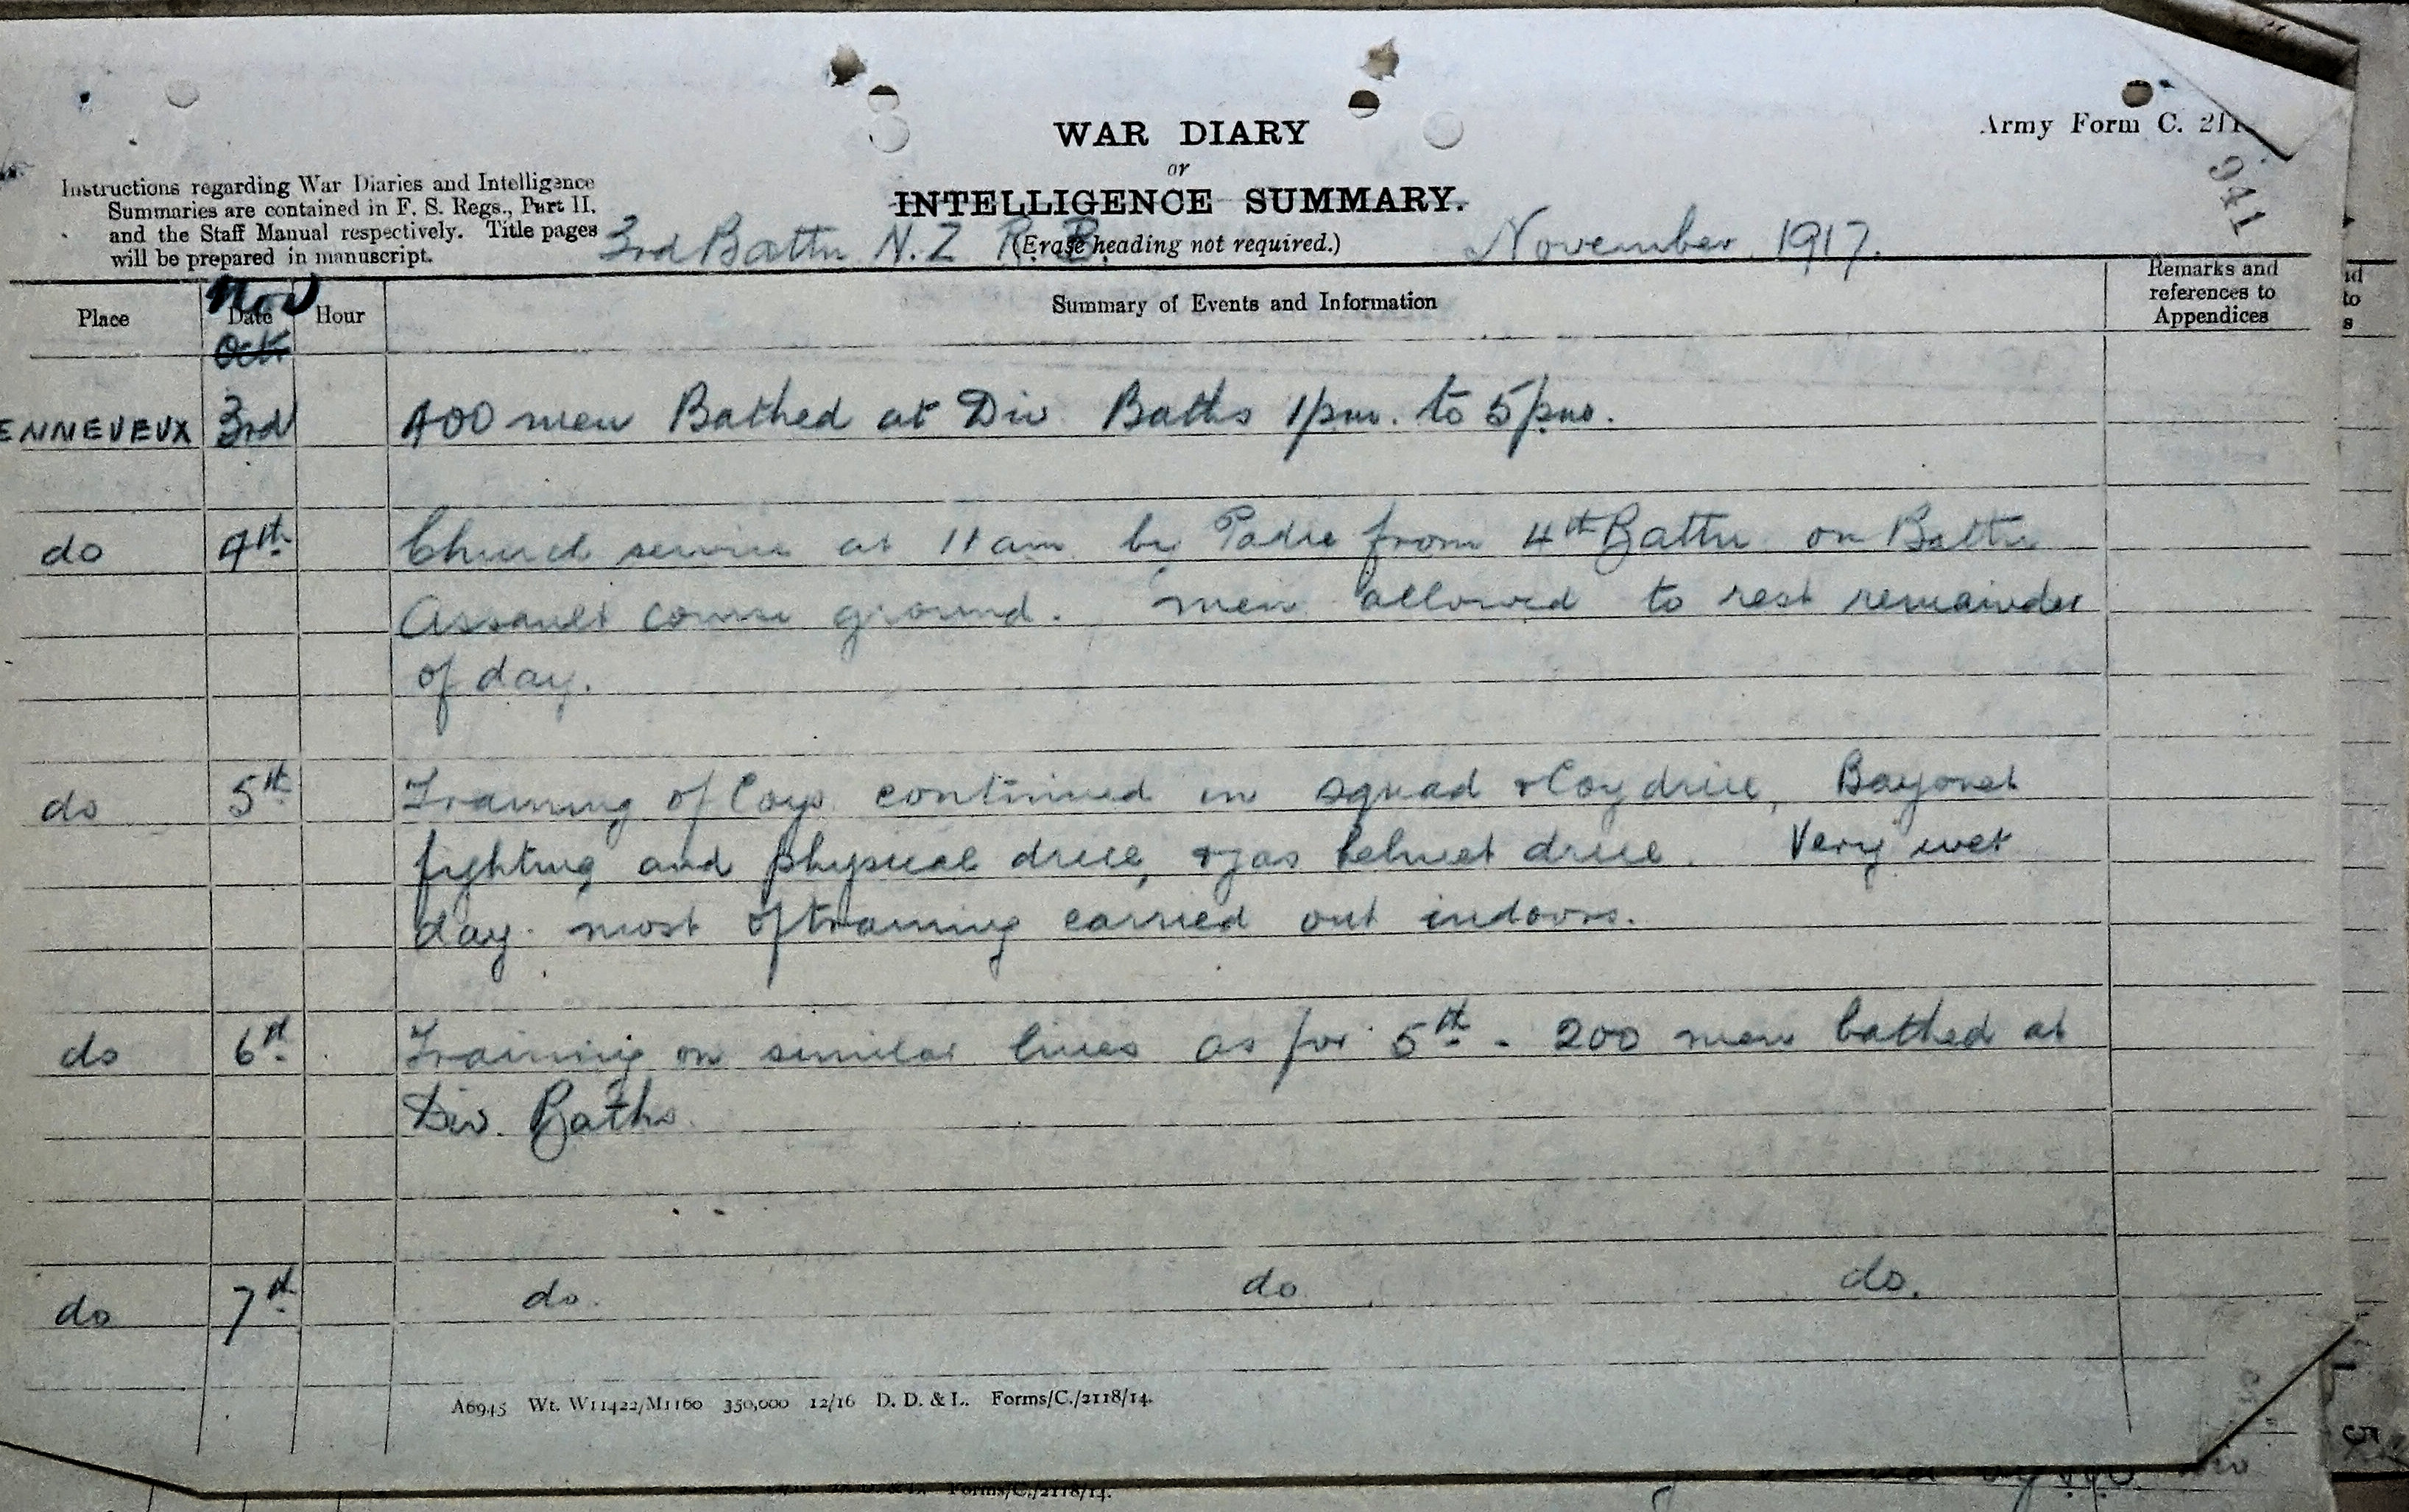 WAR DIARY
or
INTELLIGENCE SUMMARY.
(Erase heading not required.)
Army Form C. 211
941
Instructions regarding War Diaries and Intelligence
Summaries are contained in F. S. Regs., Part II.
and the Staff Manual respectively. Title pages
will be prepared in manuscript.
3rd Battn N.Z R.B. November 1917.
Place Date Hour Summary of Events and Information Remarks and references to Appendices
Nov
Oct
ENNEVEUX 3rd 400 men Bathed at Div. Baths 1pm. to 5pm.
do 4th Church service at 11 am by Padre from 4th Battn on Battn
Assault course ground. men allowed to rest remainder
of day.
do 5th Training of Coys continued in squad & Coy drill, Bayonet
fighting and physical drill, & gas helmet drill. Very wet
day. most of training carried out indoors.
do 6th Training on similar lines as for 5th - 200 men bathed at
Div. Baths.
do 7th do. do do.
A6945 Wt. W11422/M1160 350,000 12/16 D. D. & L. Forms/C./2118/14.
Forms/C./2118/14.